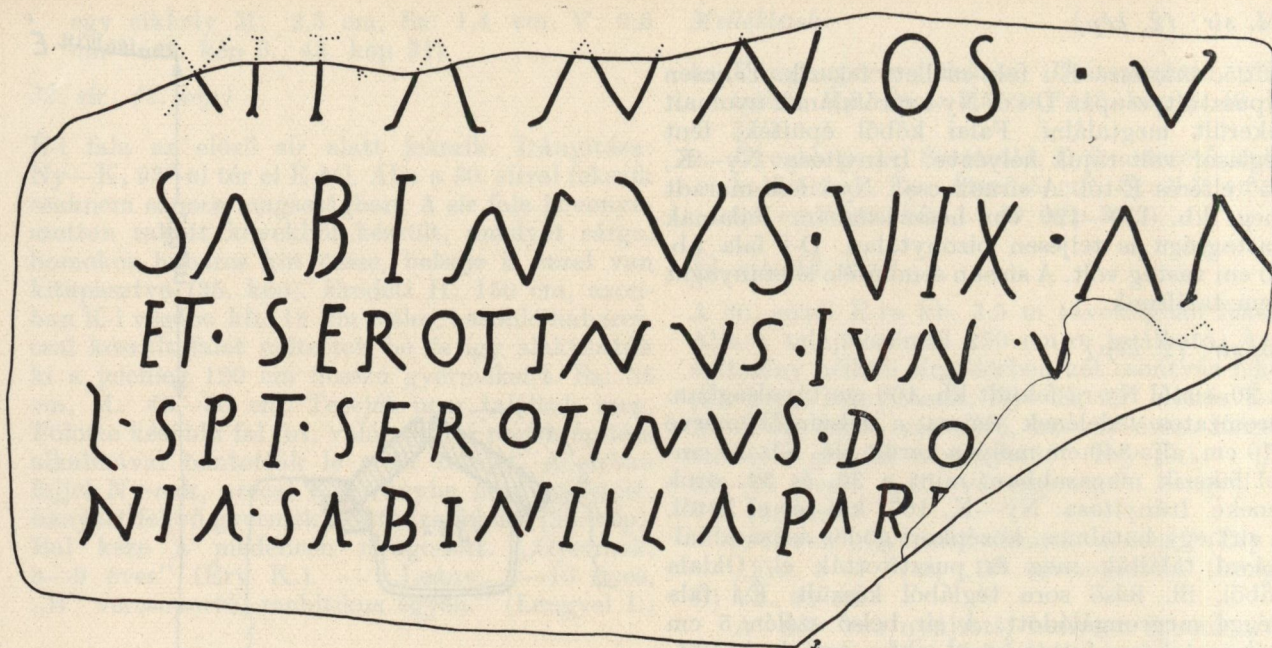 XIT · ANNOS · V
SABINVS · VIX · ANN
ET · SEROTINVS · IVN · V
SPT · SEROTINVS · DO
NIA · SABINILLA · PAR